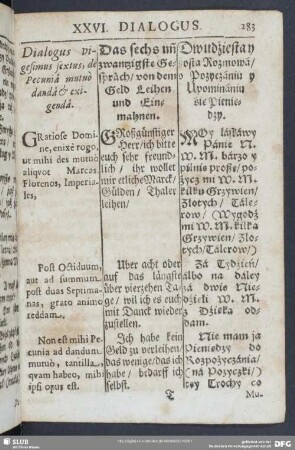 XXVI. DIALOGUS. 283
Dialogus vi-
gesimus sextus, de
Pecuniâ mutuò
dandâ & exi-
gendâ.
GRatiose Domi-
ne, enixè rogo,
ut mihi des mutuò
aliqvot Marcas,
Florenos, Imperia-
les,
Post Octiduum,
aut ad summum
post duas Septima-
nas, grato animo
reddam.
Non est mihi Pe-
cunia ad dandum
mutuò, tantilla,
qvam habeo, mihi
ipsi opus est.
Das sechs uñ
zwantzigste Ge-
spräch/ von dem
Geld Leihen
und Ein-
mahnen.
GRoßgünstiger
Herr/ich bitte
euch sehr freund-
lich/ ihr wollet
mir etliche Marck/
Gülden/ Thaler
leihen/
Uber acht oder
auf das längste
über vierzehen Ta-
ge/ wil ich es euch
mit Danck wieder
zustellen.
Ich habe kein
Geld zu verleihen/
das wenige/das ich
habe/ bedarff ich
selbst.
Dwudźiesta y
osta Rozmowa/
o Pożyczániu y
Upomínániu
śie Pienię-
dzy.
MOy łáskáwy
Pánie N.
W. M. bárzo y
pilnie proszę/ po-
życz mi W. M.
kilku Grzywien/
Złotych/ Tále-
row/ (Wygodź
mi W. M. kilká
Grzywien/ Zło-
tych/Talerow/)
Zá Tydźień/
álbo ná dáley
zá dwie Nie-
dźieli W. M.
z Dźięką od-
dam.
Nie mam ja
Pieniędzy do
Rozpożyczánia/
(ná Pożyczki/)
tey Trochy co
T Mu-
SLUB
DFG